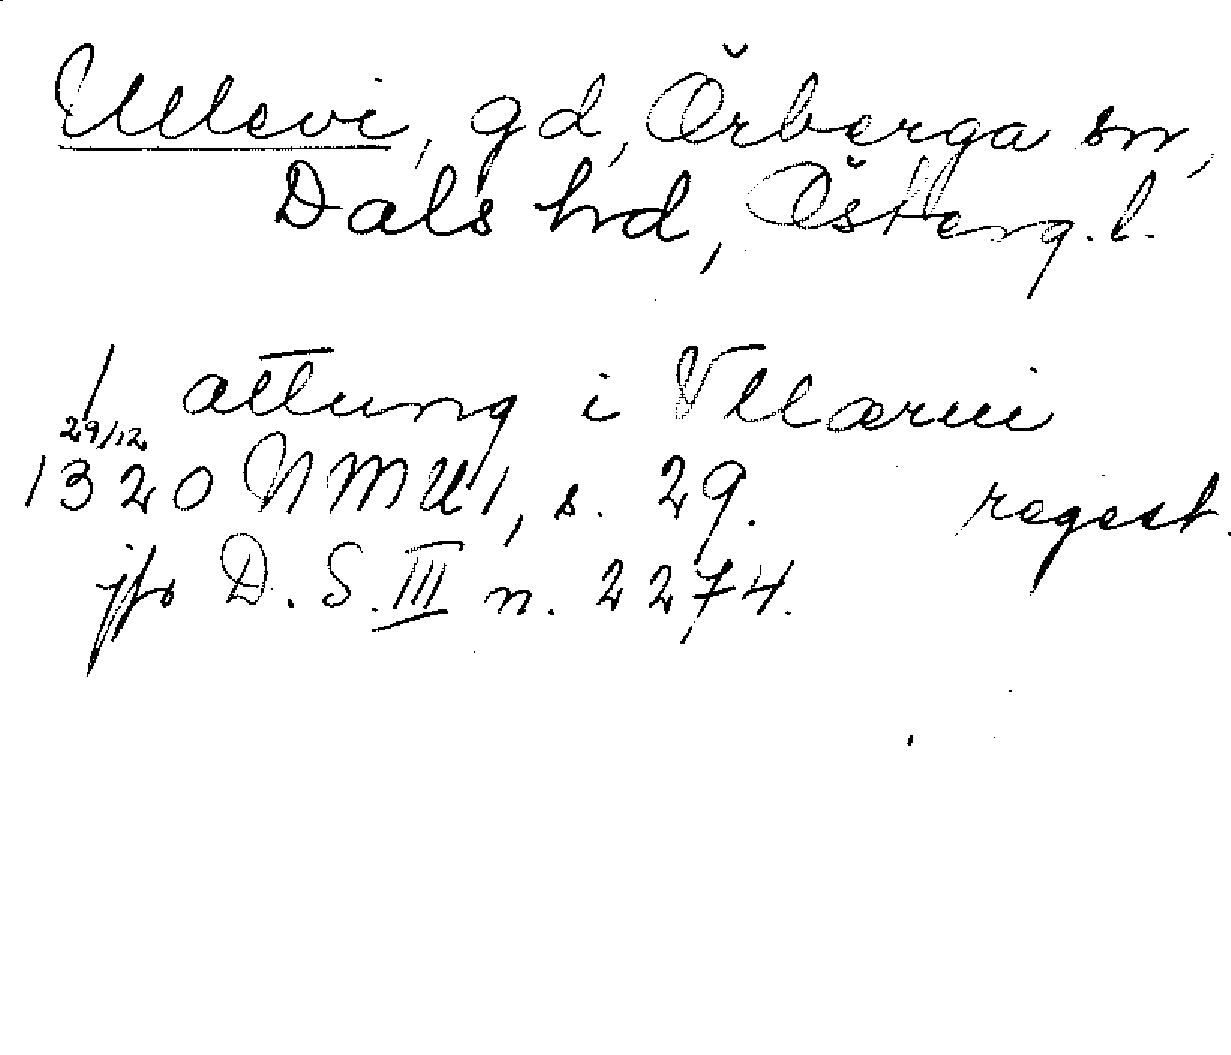 Ullevi, gd, Örberga sn,
Dals hrd, Österg. l.
1 attung i Vllærui
29/12
1320 NMU1, s. 29. regest.
jfr D. S. III n. 2274.